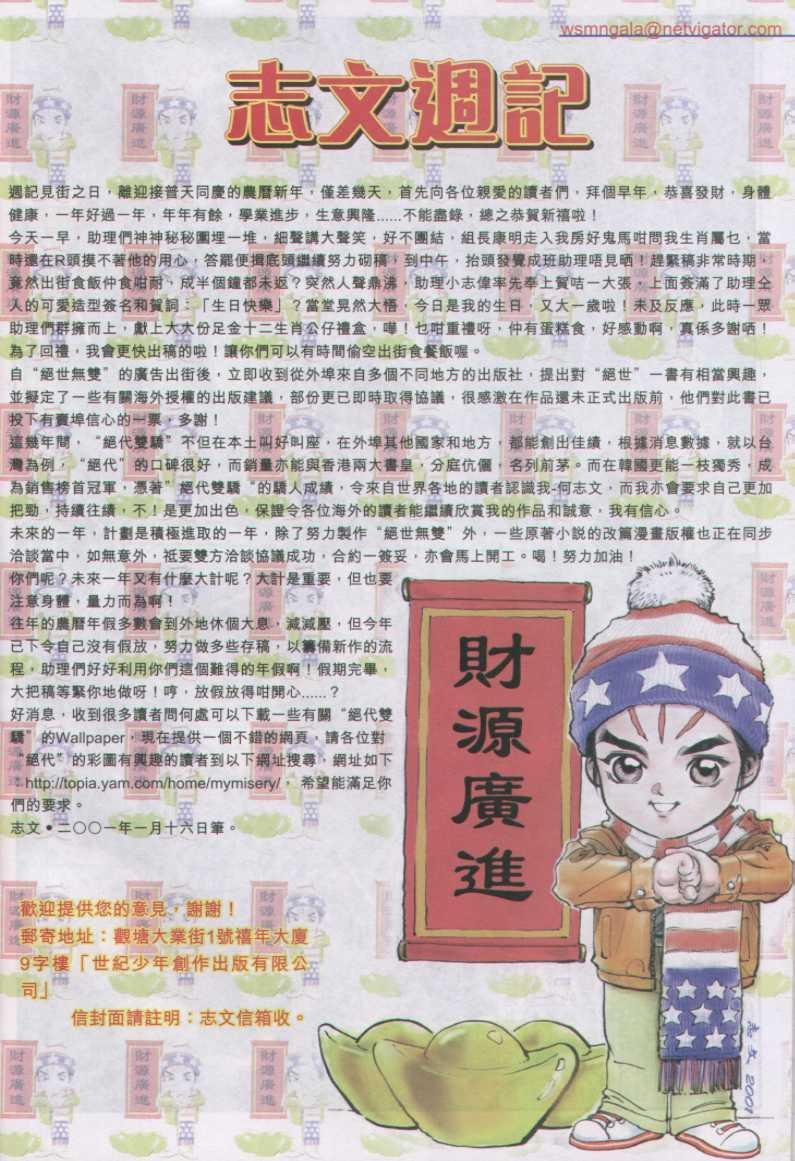 wsmngala@netvigator.com
志文週記
週記見街之日，離迎接普天同慶的農曆新年，僅差幾天，首先向各位親愛的讀者們，拜個早年，恭喜發財，身體
健康，一年好過一年，年年有餘，學業進步，生意興隆……不能盡錄，總之恭賀新禧啦！
今天一早，助理們神神秘秘圍埋一堆，細聲講大聲笑，好不團結，組長康明走入我房好鬼馬咁問我生肖屬乜，當
時還在R頭摸不著他的用心，答罷便揖底頭繼續努力砌稿，到中午，抬頭發覺成班助理唔見晒！趕緊稿非常時期，
竟然出街食飯仲食咁耐，成半個鐘都未返？突然人聲鼎沸，助理小志偉率先奉上賀咭一大張，上面簽滿了助理仝
人的可愛造型簽名和賀詞：「生日快樂」？當堂晃然大悟，今日是我的生日，又大一歲啦！未及反應，此時一眾
助理們群擁而上，獻上大大份足金十二生肖公仔禮盒，嘩！乜咁重禮呀，仲有蛋糕食，好感動啊，真係多謝晒！
為了回禮，我會更快出稿的啦！讓你們可以有時間偷空出街食餐飯喔。
自“絕世無雙”的廣告出街後，立即收到從外埠來自多個不同地方的出版社，提出對“絕世”一書有相當興趣，
並擬定了一些有關海外授權的出版建議，部份更已即時取得協議，很感激在作品還未正式出版前，他們對此書已
投下有賣埠信心的一票，多謝！
這幾年間，“絕代雙驕”不但在本土叫好叫座，在外埠其他國家和地方，都能創出佳績，根據消息數據，就以台
灣為例，“絕代”的口碑很好，而銷量亦能與香港兩大書皇，分庭伉儷，名列前茅。而在韓國更能一枝獨秀，成
為銷售榜首冠軍，憑著”絕代雙驕“的驕人成績，令來自世界各地的讀者認識我-何志文，而我亦會要求自己更加
把勁，持續往績，不！是更加出色，保證令各位海外的讀者能繼續欣賞我的作品和誠意，我有信心。
未來的一年，計劃是積極進取的一年，除了努力製作“絕世無雙”外，一些原著小說的改篇漫畫版權也正在同步
洽談當中，如無意外，祇要雙方洽談協議成功，合約一簽妥，亦會馬上開工。喝！努力加油！
你們呢？未來一年又有什麼大計呢？大計是重要，但也要
注意身體，量力而為啊！
往年的農曆年假多數會到外地休個大息，減減壓，但今年
已下令自己沒有假放，努力做多些存稿，以籌備新作的流
程，助理們好好利用你們這個難得的年假啊！假期完畢，
大把稿等緊你地做呀！哼，放假放得咁開心……？
好消息，收到很多讀者問何處可以下載一些有關“絕代雙
驕”的Wallpaper，現在提供一個不錯的網頁，請各位對
“絕代”的彩圖有興趣的讀者到以下網址搜尋，網址如下
：http://topia.yam.com/home/mymisery/，希望能滿足你
們的要求。
志文•二〇〇一年一月十六日筆。
財源廣進
歡迎提供您的意見，謝謝！
郵寄地址：觀塘大業街1號禧年大廈
9字樓「世紀少年創作出版有限公
司」
信封面請註明：志文信箱收。
志文 2001